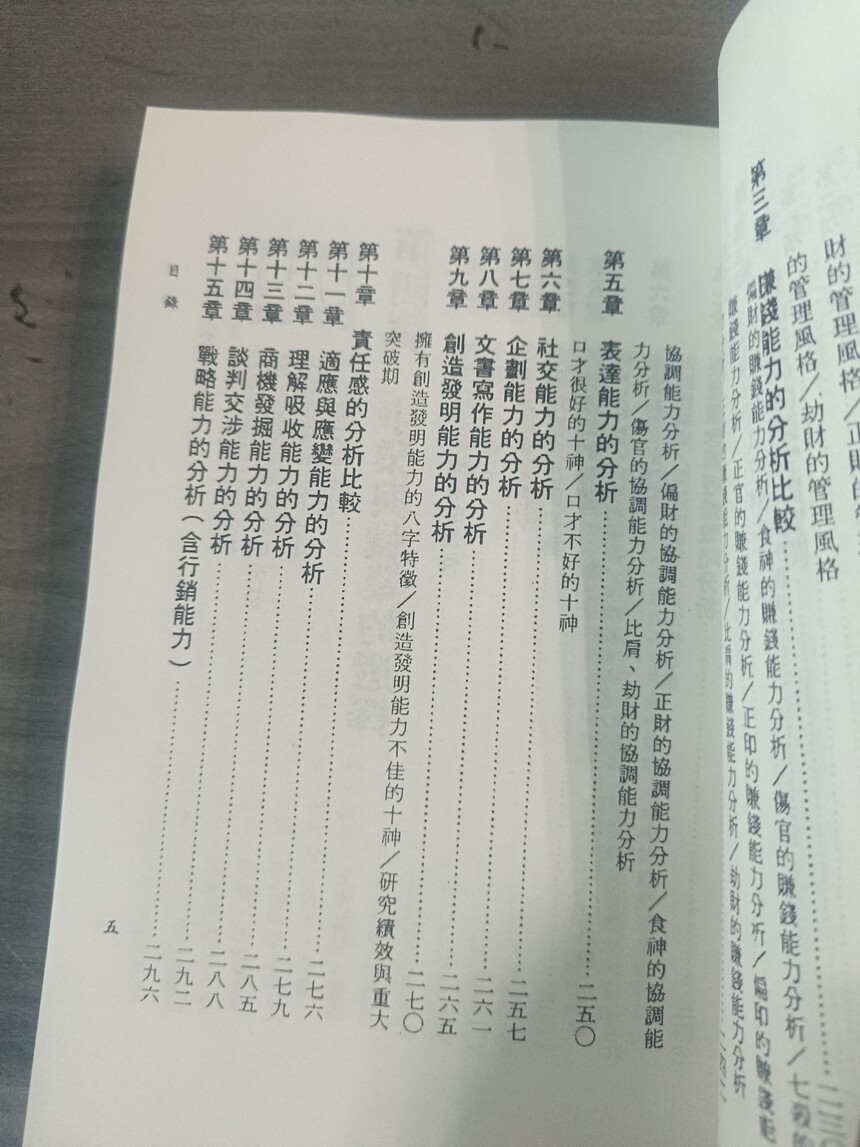 財的管理風格／正財的管
的管理風格／劫財的管理風格
第三章 賺錢能力的分析比較……二三〇
偏財的賺錢能力分析／食神的賺錢能力分析／傷官的賺錢能力分析／七殺的
賺錢能力分析／正官的賺錢能力分析／正印的賺錢能力分析／偏印的賺錢能
比肩的賺錢能力分析／劫財的賺錢能力分析
協調能力分析／偏財的協調能力分析／正財的協調能力分析／食神的協調能
力分析／傷官的協調能力分析／比肩、劫財的協調能力分析
第五章 表達能力的分析……二五〇
口才很好的十神／口才不好的十神
第六章 社交能力的分析……二五七
第七章 企劃能力的分析……二六一
第八章 文書寫作能力的分析……二六五
第九章 創造發明能力的分析……二七〇
擁有創造發明能力的八字特徵／創造發明能力不佳的十神／研究績效與重大
突破期
第十章 責任感的分析比較……二七六
第十一章 適應與應變能力的分析……二七九
第十二章 理解吸收能力的分析……二八五
第十三章 商機發掘能力的分析……二八八
第十四章 談判交涉能力的分析……二九二
第十五章 戰略能力的分析（含行銷能力）……二九六
目錄
五